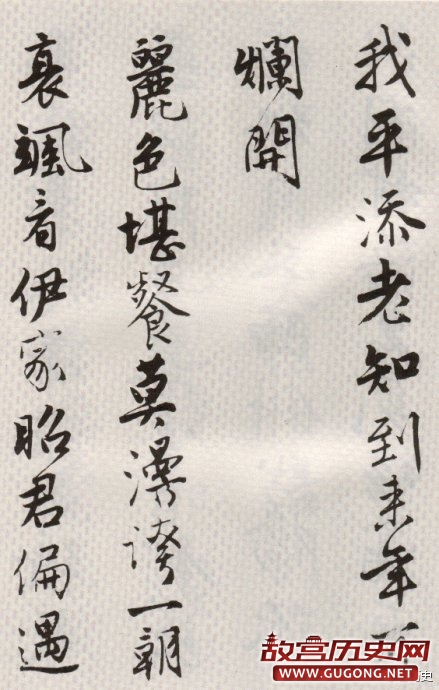 我平添老知到来年
爛開
麗色堪餐莫漫誇一朝
衰颯看伊家昭君偏遇
故宫历史网
WWW.GUGONG.NET
史